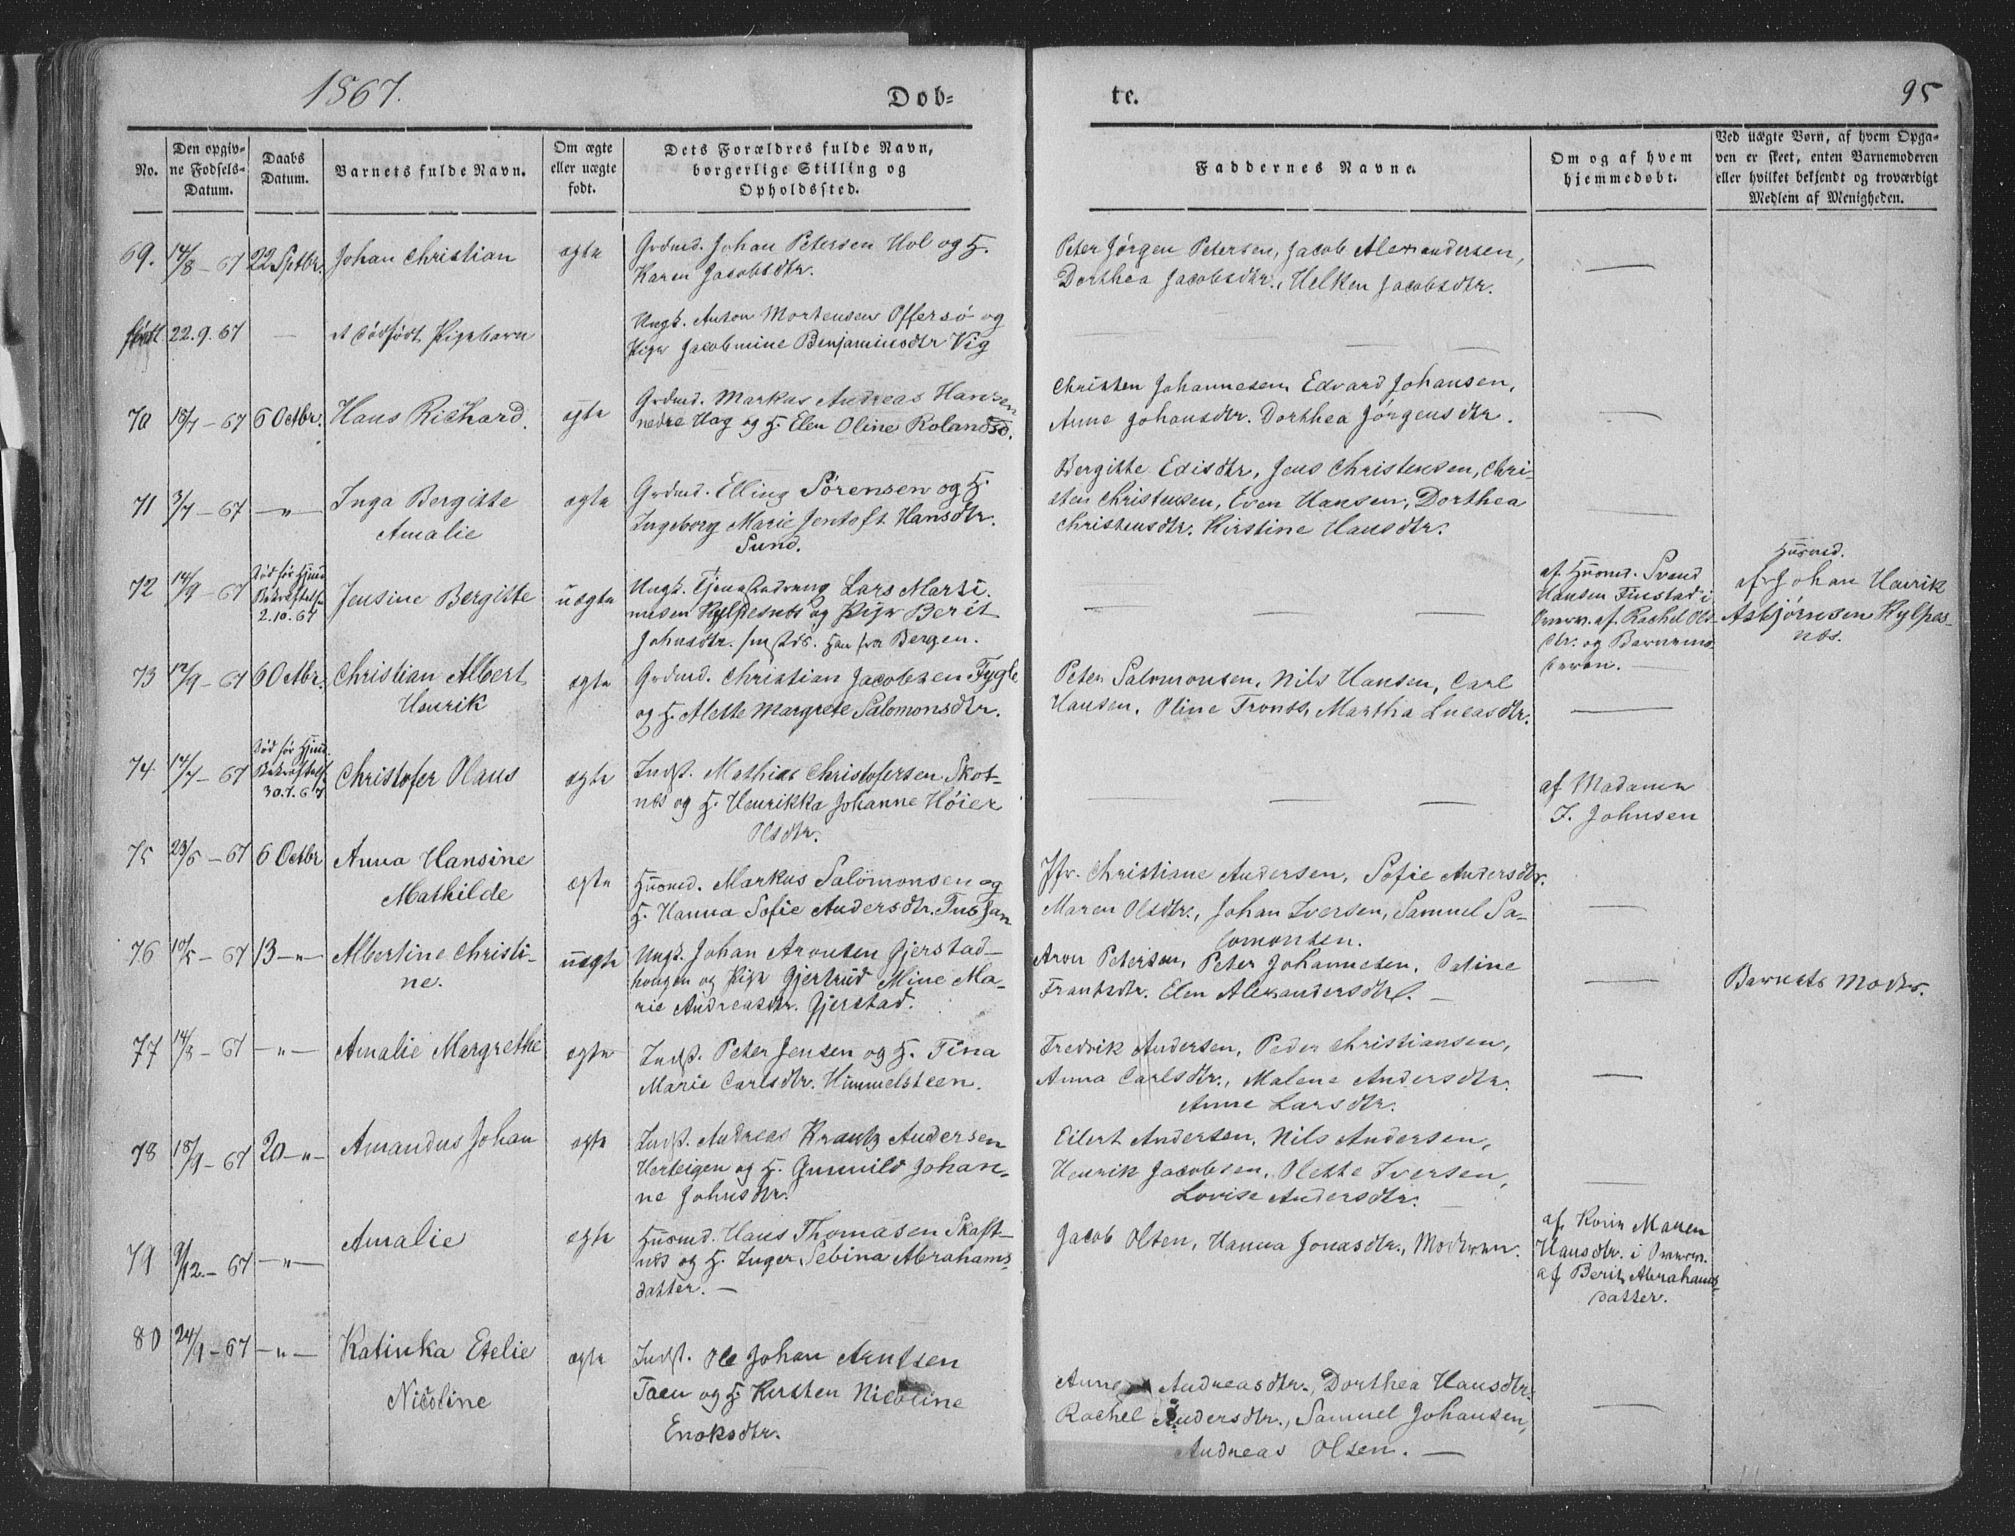 1867.
Dob-
te.
95
No.
Den opgiv-
ne Fødsels-
Datum.
Daabs
Datum.
Barnets fulde Navn.
Om ægte
eller uægte
født.
Dets Forældres fulde Navn,
borgerlige Stilling og
Opholdssted.
Faddernes Navne.
Om og af hvem
hjemmedøbt.
Ved uægte Børn, af hvem Opga-
ven er skeet, enten Barnemoderen
eller hvilket bekjendt og troværdigt
Medlem af Menigheden.
69. 14/8 - 67 22 Sptbr. Johan Christian ægte
Grdmd. Johan Petersen Hol og H.
Karen Jacobsdtr.
Peter Jørgen Petersen, Jacob Alexandersen,
Dorthea Jacobsdtr., Helken Jacobsdtr.
22.9.67 — et dødfødt Pigebarn
Ungk. Anton Mortensen Offersø og
Pige Jacobmine Benjaminsdtr Vig
70 18/7 - 67 6 Octbr. Hans Richard. ægte
Grdmd. Markus Andreas Hansen
nedre Hag og H. Elen Oline Rolandsd.
Christen Johannesen, Edvard Johansen,
Anne Johansdtr. Dorthea Jørgensdtr.
71 3/7 - 67 — " — Inga Bergitte
Amalie
ægte
Grdmd. Elling Sørensen og H.
Ingeborg Marie Jentoft Hansdtr.
Sund.
Bergitte Edisdtr, Jens Christensen, Chri-
sten Christensen, Even Hansen, Dorthea
Christensdtr. Kirstine Hansdtr.
72 14/9 - 67 Død før Hjmd.
Bekræftelse
2.10.67
Jensine Bergitte uægte
Ungk. Tjenestedreng Lars Marti-
nesen Kylpesnes og Pige Berit
Johnsdtr. smstds. Han fra Bergen.
af Husmd. Svend
Hansen Finstad i
Overv. af Rachel Ols-
dtr. og Barnemo-
deren.
Husmd.
af Johan Henrik
Asbjørnsen Kylpes-
nes.
73 12/9 - 67 6 Octbr. Christian Albert
Henrik
ægte
Grdmd. Christian Jacobsen Fygle
og H. Mette Margrete Salomonsdtr.
Peter Salomonsen, Nils Hansen, Carl
Hansen, Oline Tronds, Martha Lucasdtr.
74. 14/7 - 67 Død før Hjmd.
Bekræftelse
30.7.67
Christofer Olaus ægte
Indst. Mathias Christofersen Skot-
nes og H. Henrikka Johanne Høier
Olsdtr.
af Madamen
I. Johnsen
75 23/5 - 67 6 Octbr Anna Hansine
Mathilde
ægte
Husmd. Markus Salomonsen og
H. Hanna Sofie Andersdtr.
Jfr. Christiane Andersen, Sofie Andersdtr.
Maren Olsdtr., Johan Iversen, Samuel Sa-
lomonsen.
76 10/5 - 67 13 — " — Albertine Christi-
ne.
uægte
Ungk. Johan Aronsen Gjerstad-
haugen og Pige Gjertrud Mine Ma-
rie Andreasdtr. Gjerstad.
Aron Petersen, Peter Johannesen, Daline
Frantsdtr. Elen Alexandersdtr. —
Barnets Moder.
77 14/8 - 67 — " — Amalie Margrethe ægte
Indst. Peter Jensen og H. Tina
Marie Carlsdtr. Himmelsteen.
Fredrik Andersen, Peder Christiansen,
Anna Carlsdtr., Malene Andersdtr.
Anne Larsdtr.
78 18/9 - 67 20 — " — Amandus Johan ægte
Indst. Andreas Krantz Andersen
Herteigen og H. Gunnild Johan-
ne Johnsdtr.
Eilert Andersen, Nils Andersen,
Henrik Jacobsen, Olette Iversen,
Lovise Andersdtr.
79 9/12 - 67 — " — Amalie ægte
Husmd. Hans Thomasen Skaft-
nes og H. Inger Sebina Abrahams-
datter. —
Jacob Olsen, Hanna Jonasdtr., Moderen.
af Kone Maren
Hansdtr. i Overv.
af Berit Abrahams
datter.
80 24/9 - 67 — " — Katinka Etelie
Nicoline
ægte
Indst. Ole Johan Arntsen
Taen og H. Kirsten Nicoline
Enoksdtr.
Anne Andreasdtr., Dorthea Hansdtr.
Rachel Andersdtr., Samuel Johansen,
Andreas Olsen. —